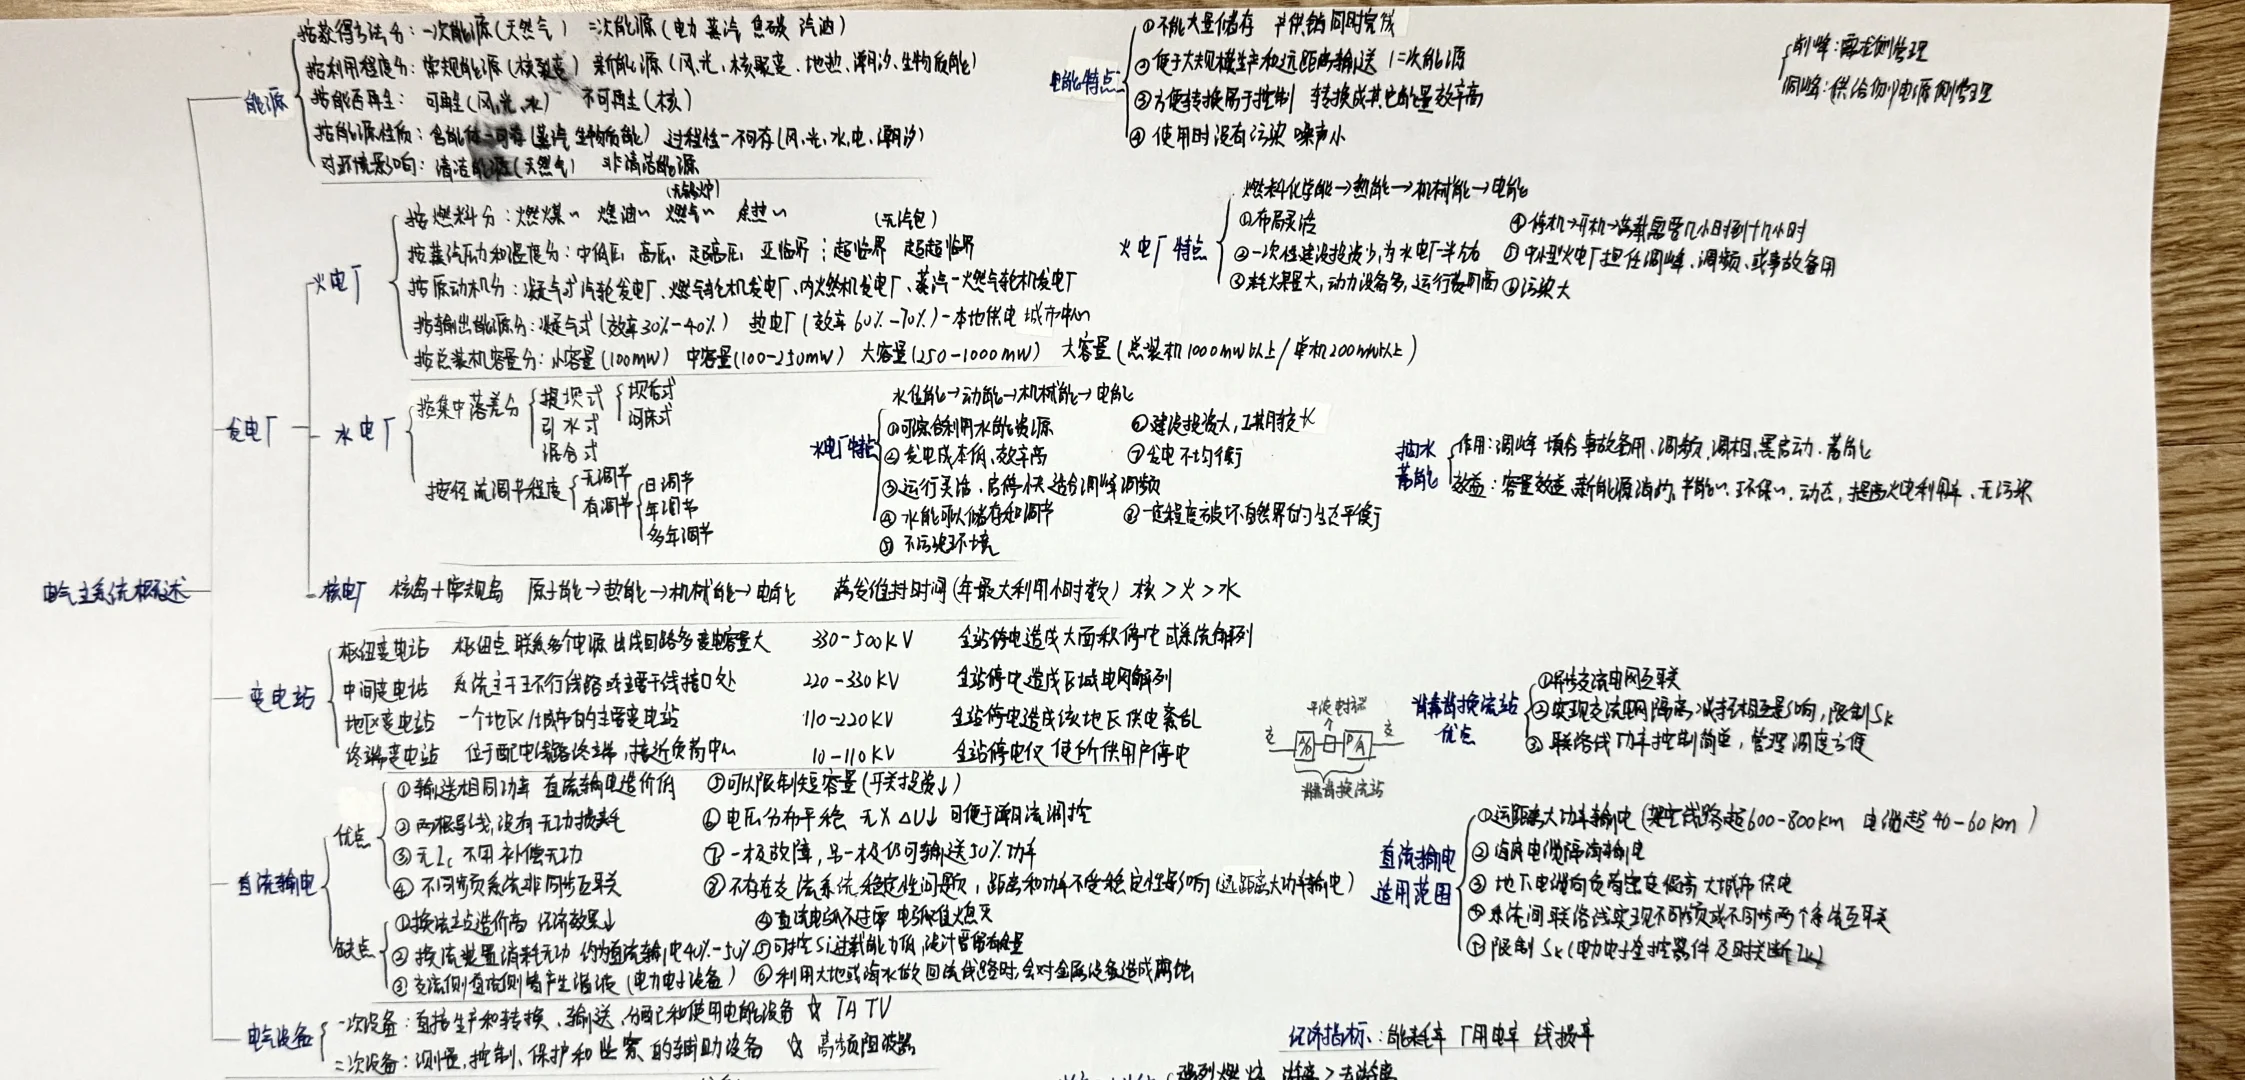 电气主系统概述
能源
按获得方法分：一次能源(天然气) 二次能源(电力 蒸汽 焦碳 汽油)
按利用程度分：常规能源(核裂变) 新能源(风、光、核聚变、地热、潮汐、生物质能)
按能否再生：可再生(风、光、水) 不可再生(核)
按能源性质：含能体-可存(蒸汽 生物质能) 过程性-不可存(风、光、水、电、潮汐)
对环境影响：清洁能源(天然气) 非清洁能源
电能特点
①不能大量储存 产供销同时完成
②便于大规模生产和远距离输送 /二次能源
③方便转换易于控制 转换成其它能量效率高
④使用时没有污染 噪声小
削峰：需求侧管理
调峰：供给侧/电源侧管理
发电厂
火电厂
(无锅炉)
按燃料分：燃煤〃 燃油〃 燃气〃 余热〃 (无汽包)
按蒸汽压力和温度分：中低压 高压、超高压 亚临界 超临界 超超临界
按原动机分：凝气式汽轮发电厂、燃气轮机发电厂、内燃机发电厂、蒸汽-燃气轮机发电厂
按输出能源分：凝气式(效率30%-40%) 热电厂(效率60%-70%)-本地供电 城市中心
按总装机容量分：小容量(100mw) 中容量(100-250mw) 大容量(250-1000mw) 大容量(总装机1000mw以上/单机200mw以上)
火电厂特点
燃料化学能→热能→机械能→电能
①布局灵活
②一次性建设投资少，为水电厂一半左右
③耗煤量大，动力设备多，运行费用高
④停机→开机→满载需要几小时到十几小时
⑤中小型火电厂担任调峰、调频、或事故备用
⑥污染大
水电厂
按集中落差分
堤坝式
坝后式
河床式
引水式
混合式
按径流调节程度
无调节
有调节
日调节
年调节
多年调节
水电厂特点
水位能→动能→机械能→电能
①可综合利用水能资源
②发电成本低、效率高
③运行灵活、启停快 适合调峰调频
④水能可以储存和调节
⑤不污染环境
⑥建设投资大，工期较长
⑦发电不均衡
⑧一定程度破坏自然界的生态平衡
抽水蓄能
作用：调峰 填谷 事故备用、调频、调相、黑启动、蓄能
效益：容量效益、新能源消纳、节能〃、环保〃、动态，提高火电利用率、无污染
核电厂
核岛+常规岛 原子能→热能→机械能→电能 满发维持时间(年最大利用小时数) 核>火>水
变电站
枢纽变电站 枢纽点 联系多个电源 出线回路多变电容量大 330-500KV 全站停电造成大面积停电或系统解列
中间变电站 系统主干环行线路或主要干线接口处 220-330KV 全站停电造成区域电网解列
地区变电站 一个地区/城市的主要变电站 110-220KV 全站停电造成该地区供电紊乱
终端变电站 位于配电线路终端，接近负荷中心 10-110KV 全站停电仅使所供用户停电
背靠背换流站
背靠背换流站优点
①异步交流电网互联
②实现交流电网隔离，减轻相互影响，限制Sk
③联络线功率控制简单，管理调度方便
直流输电
优点
①输送相同功率 直流输电造价低
②两根导线，没有无功损耗
③无Ic 不用补偿无功
④不同频系统非同步互联
⑤可以限制短容量(开关投资↓)
⑥电压分布平稳 无X ΔU↓ 可便于潮流调控
⑦一极故障，另一极仍可输送50%功率
⑧不存在交流系统稳定性问题，距离和功率不受稳定性影响(远距离大功率输电)
缺点
①换流站造价高 经济效果↓
②换流装置消耗无功 约为直流输电40%-50%
③交流侧直流侧皆产生谐波(电力电子设备)
④直流电弧不过零 电弧难熄灭
⑤可控Si过载能力低，设计要留有余量
⑥利用大地或海水做回流线路时会对金属设备造成腐蚀
直流输电适用范围
①远距离大功率输电(架空线路超600-800km 电缆超40-60km)
②海底电缆隔海输电
③地下电缆向负荷密度很高大城市供电
④系统间联络线实现不同频或不同步两个系统互联
⑤限制Sk(电力电子全控器件及时关断Ik)
电气设备
一次设备：直接生产和转换、输送、分配和使用电能设备 ☆ TA TV
二次设备：测量、控制、保护和监察的辅助设备 ☆ 高频阻波器
经济指标：能耗率 厂用电率 线损率